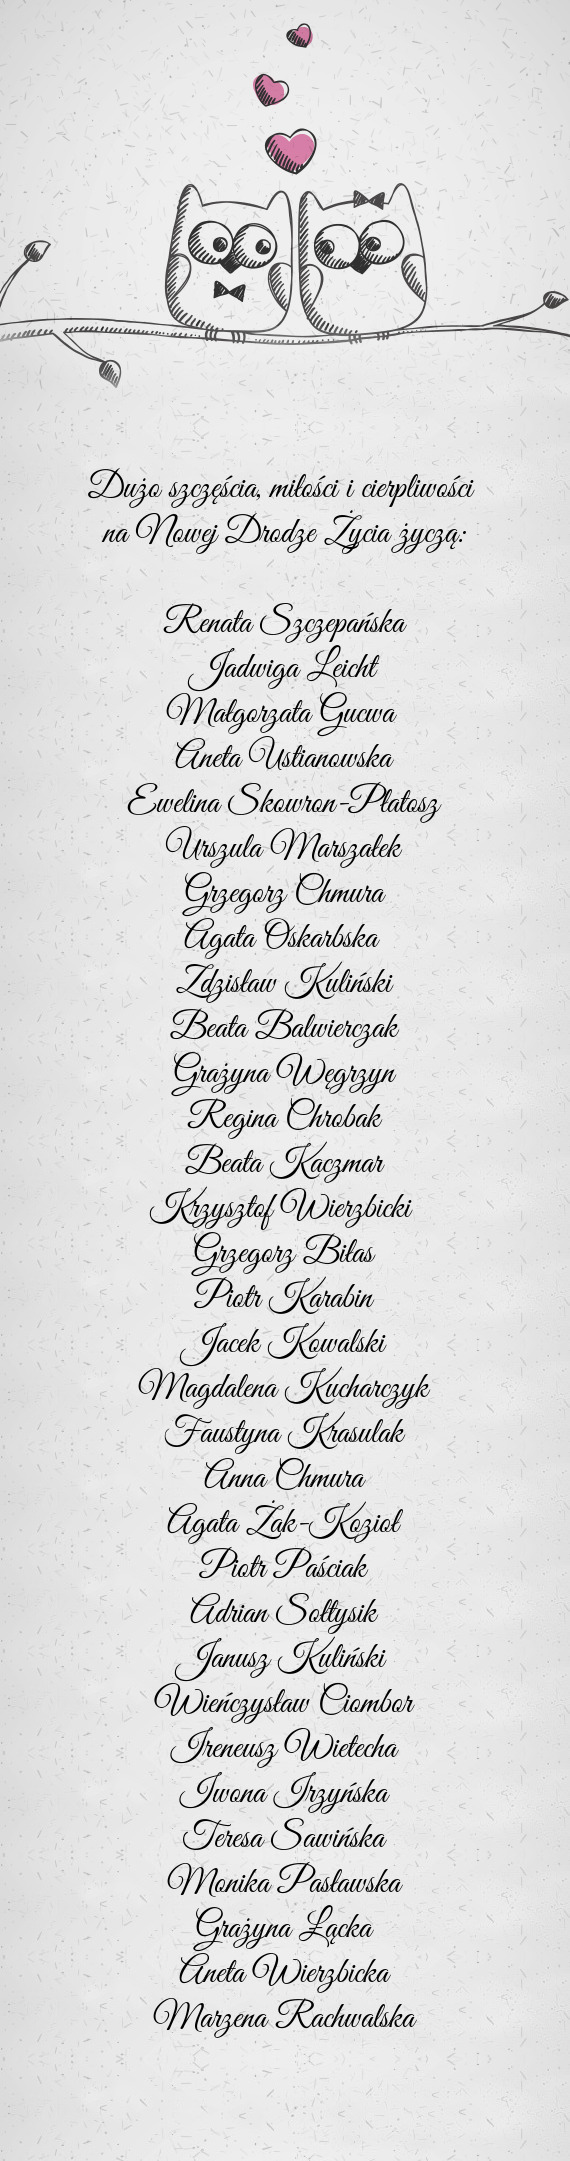 Dużo szczęścia, miłości i cierpliwości
na Nowej Drodze Życia życzą:
Renata Szczepańska
Jadwiga Leicht
Małgorzata Gucwa
Aneta Ustianowska
Ewelina Skowron-Płatosz
Urszula Marszałek
Grzegorz Chmura
Agata Oskarbska
Zdzisław Kuliński
Beata Balwierczak
Grażyna Węgrzyn
Regina Chrobak
Beata Kaczmar
Krzysztof Wierzbicki
Grzegorz Bilas
Piotr Karabin
Jacek Kowalski
Magdalena Kucharczyk
Faustyna Krasulak
Anna Chmura
Agata Żak-Kozioł
Piotr Paściak
Adrian Sołtysik
Janusz Kuliński
Wieńczysław Ciombor
Ireneusz Wietecha
Iwona Irzyńska
Teresa Sawińska
Monika Pasławska
Grażyna Łącka
Aneta Wierzbicka
Marzena Rachwalska